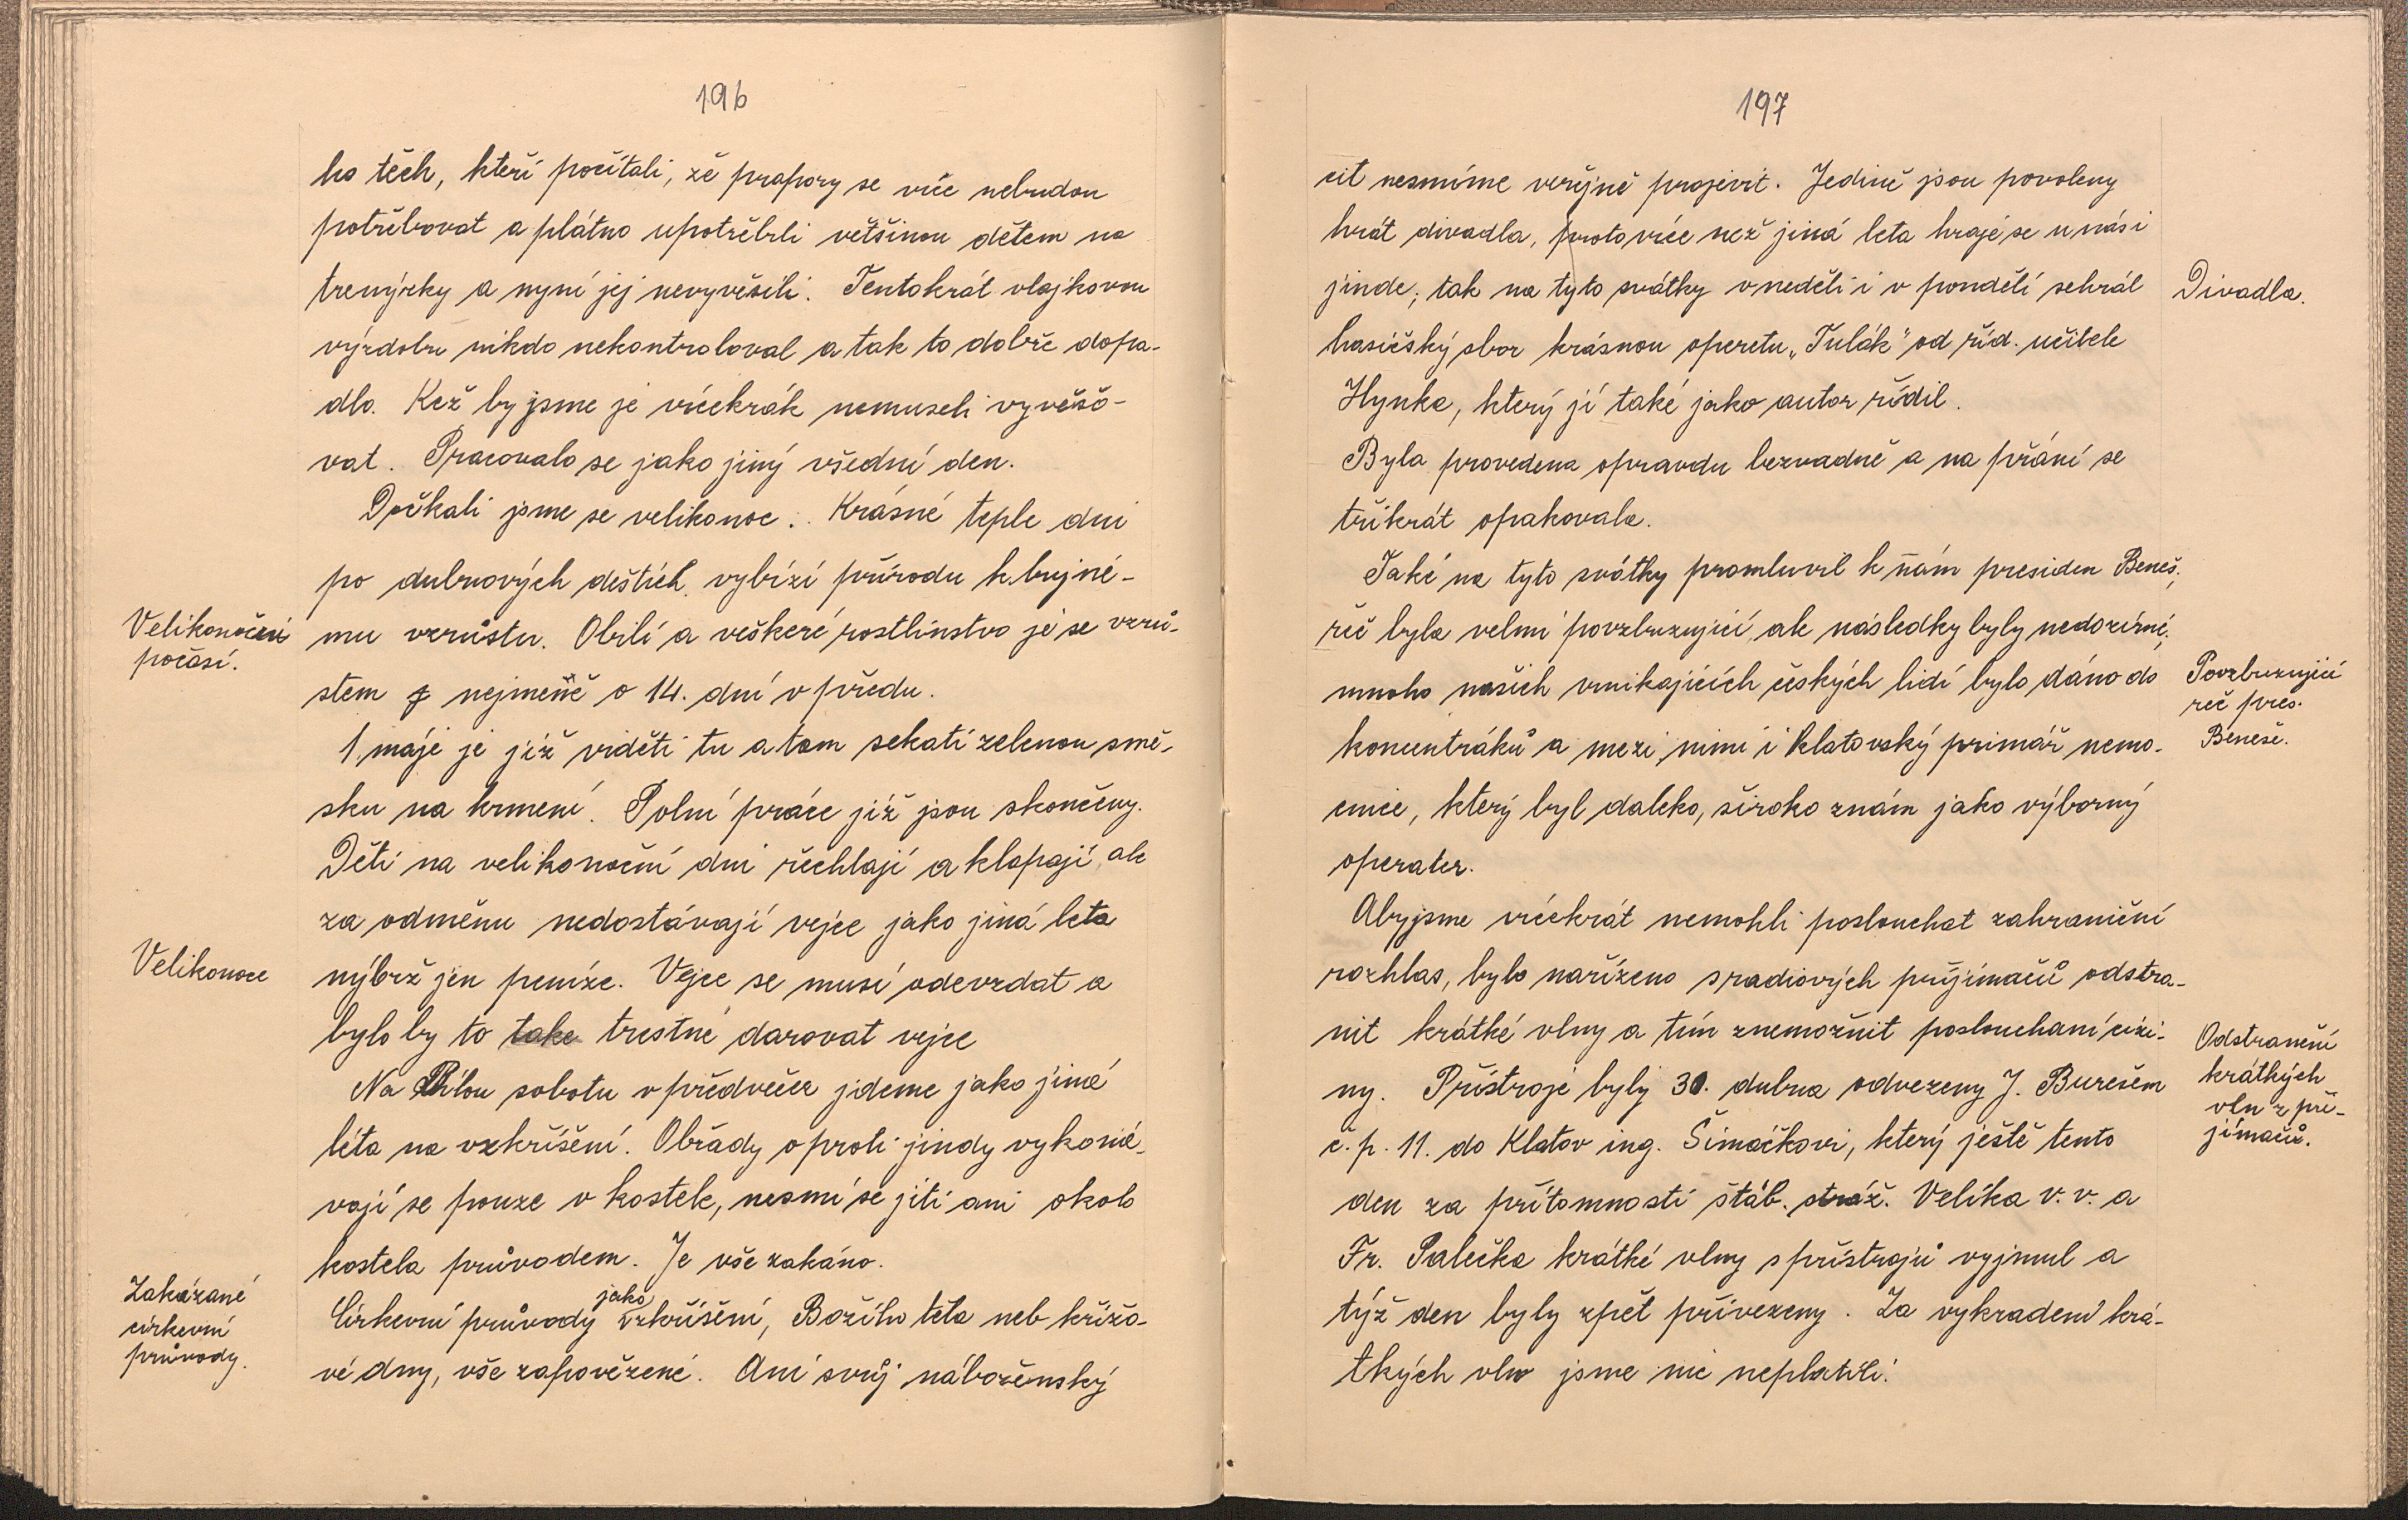 196
ho těch, kteří počítali, že prapory se více nebudou
potřebovat a plátno upotřebili většinou dětem na
trenýrky a nyní jej nevyvěsili. Tentokrát vlajkovou
výzdobu nikdo nekontroloval a tak to dobře dopa-
dlo. Kež by jsme je vícekrák nemuseli vyvěšo-
vat. Pracovalo se jako jiný všední den.
Dočkali jsme se velikonoc. Krásné teple dni
po dubnových deštích vybízí přírodu k bujné-
Velikonoční
počasí.
mu vzrůstu. Obilí a veškeré rostlinstvo je se vzrů-
stem z nejmeně o 14. dní v předu.
1. máje je již viděti tu a tam sekati zelenou smě-
sku na krmení. Polní práce již jsou skončeny.
Děti na velikonoční dni řechlají a klapají, ale
za odměnu nedostávají vejce jako jiná leta
Velikonoce
nýbrž jen peníze. Vejce se musí odevzdat a
bylo by to take trestné darovat vejce
Na Bílou sobotu v předvečer jdeme jako jiná
léta na vzkříšení. Obřady oproti jindy vykoná-
vají se pouze v kostele, nesmí se jíti ani okolo
kostela průvodem. Je vše zakáno.
Zakázané
církevní
průvody.
Církevní průvody jako vzkříšení, Božího těla neb křížo-
vé dny, vše zapovězené. Ani svůj náboženský
197
cit nesmíme veřejně projevit. Jedině jsou povoleny
hrát divadla, proto více než jiná leta hraje se u nás i
jinde; tak na tyto svátky v neděli i v pondělí sehrál
Divadla.
hasičský sbor krásnou operetu „Tulák" od říd. učitele
Hynka, který jí také jako autor řídil.
Byla provedena opravdu bezvadně a na přání se
třikrát opakovala.
Také na tyto svátky promluvil k nám presiden Beneš;
řeč byla velmi povzbuzující, ale následky byly nedozírné;
mnoho našich vynikajících českých lidí bylo dáno do
Povzbuzující
řeč pres.
Beneše.
koncentráků a mezi nimi i klatovský primář nemo-
cnice, který byl daleko, široko znám jako výborný
operater.
Aby jsme vícekrát nemohli poslouchat zahraniční
rozhlas, bylo nařízeno s radiových přijímačů odstra-
nit krátké vlny a tím znemožnit poslouchaní cizi-
Odstranění
krátkých
vln z při-
jímačů.
ny. Přístroje byly 30. dubna odvezeny J. Burešem
č. p. 11. do Klatov ing. Šimáčkovi, který ještě tento
den za přítomnosti štáb. stráž. Velíka v. v. a
Fr. Palečka krátké vlny s přístrojů vyjmul a
týž den byly zpět přivezeny. Za vykradení krá-
tkých vln jsme nic neplatili.